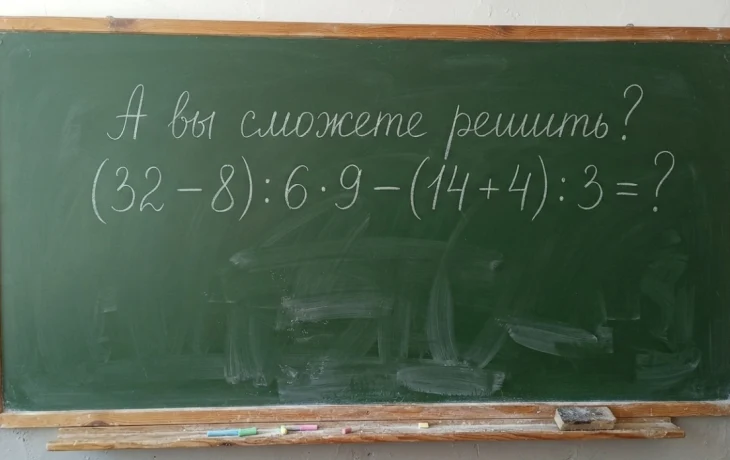 А вы сможете решить?
(32 − 8) : 6 · 9 − (14 + 4) : 3 = ?